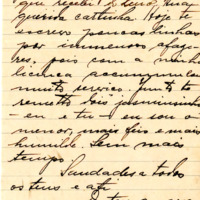 que recebi
querida cartinha Hoje te
escrevo poucas linhas
por immensos afaze-
res, pois com a minha
licença accumulou
muito serviço. Junto te
remetto dois jasminsinhos
— eu e tu — eu sou o
menor, mais feio e mais
humilde. Sem mais
tempo.
Saudades a todos
os teus e a ti